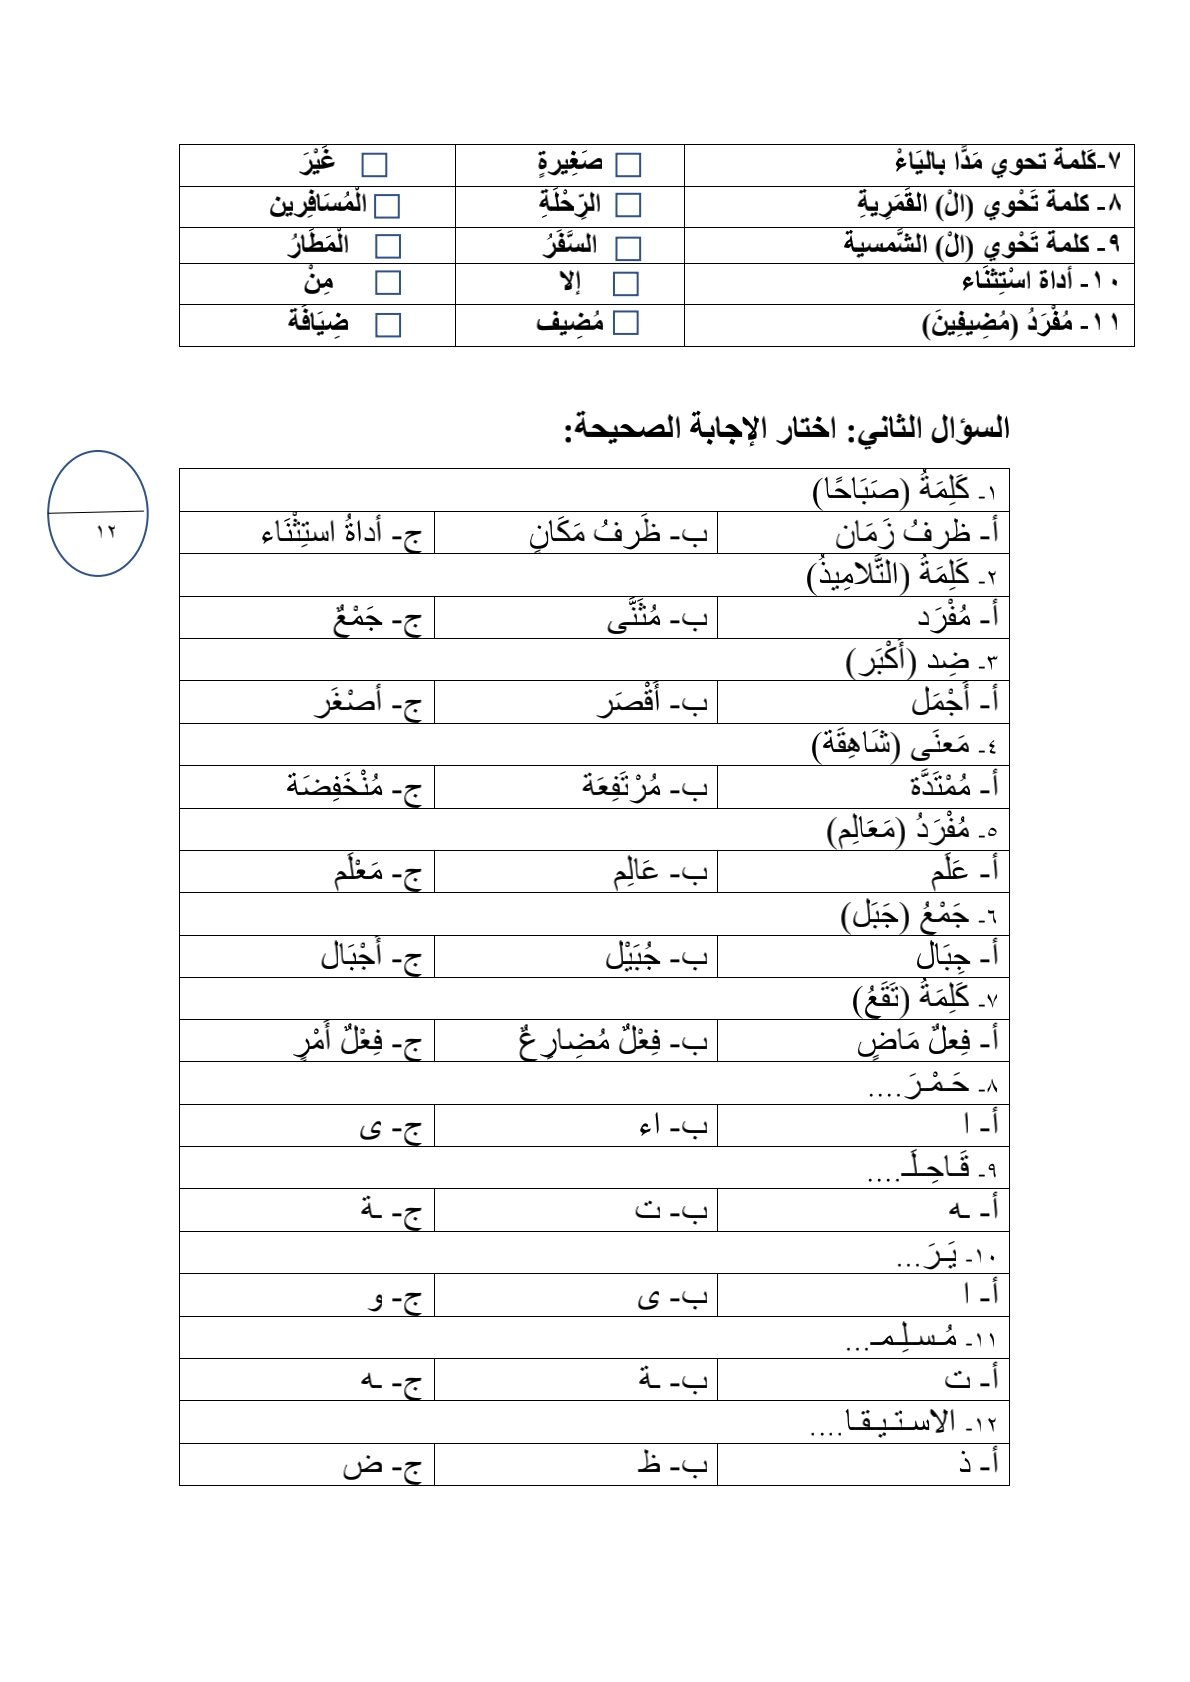 ٧-كَلمة تحوي مَدًّا باليَاءْ صَغِيرةٍ غَيْرَ
٨- كلمة تَحْوي (الْ) القَمَرِيةِ الرِّحْلَةِ الْمُسَافِرين
٩- كلمة تَحْوي (الْ) الشَّمسية السَّفَرُ الْمَطَارُ
١٠- أداة اسْتِثْنَاء إلا مِنْ
١١- مُفْرَدُ (مُضِيفِينَ) مُضِيف ضِيَافَة
السؤال الثاني: اختار الإجابة الصحيحة:
١٢
١- كَلِمَةُ (صَبَاحًا)
أ- ظرفُ زَمَان ب- ظَرفُ مَكَانِ ج- أداةُ استِثْنَاء
٢- كَلِمَةُ (التَّلامِيذُ)
أ- مُفْرَد ب- مُثَنَّى ج- جَمْعٌ
٣- ضِد (أَكْبَر)
أ- أَجْمَل ب- أَقْصَر ج- أصْغَر
٤- مَعنَى (شَاهِقَة)
أ- مُمْتَدَّة ب- مُرْتَفِعَة ج- مُنْخَفِضَة
٥- مُفْرَدُ (مَعَالِم)
أ- عَلَم ب- عَالِم ج- مَعْلَم
٦- جَمْعُ (جَبَل)
أ- جِبَال ب- جُبَيْل ج- أَجْبَال
٧- كَلِمَةُ (تَقَعُ)
أ- فِعلٌ مَاضٍ ب- فِعْلٌ مُضِارِعٌ ج- فِعْلٌ أَمْرٍ
٨- حَـمْـرَ....
أ- ا ب- اء ج- ى
٩- قَـاحِـلَـ....
أ- ـه ب- ت ج- ـة
١٠- يَـرَ...
أ- ا ب- ى ج- و
١١- مُـسـلِـمـ...
أ- ت ب- ـة ج- ـه
١٢- الاسـتـيـقـا....
أ- ذ ب- ظ ج- ض